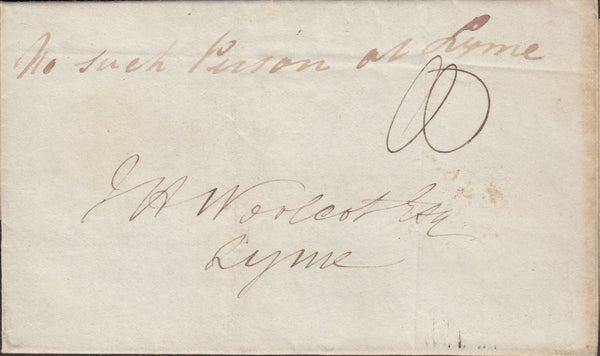 No such Person at Lyme
J H Worlcot Esq
Lyme